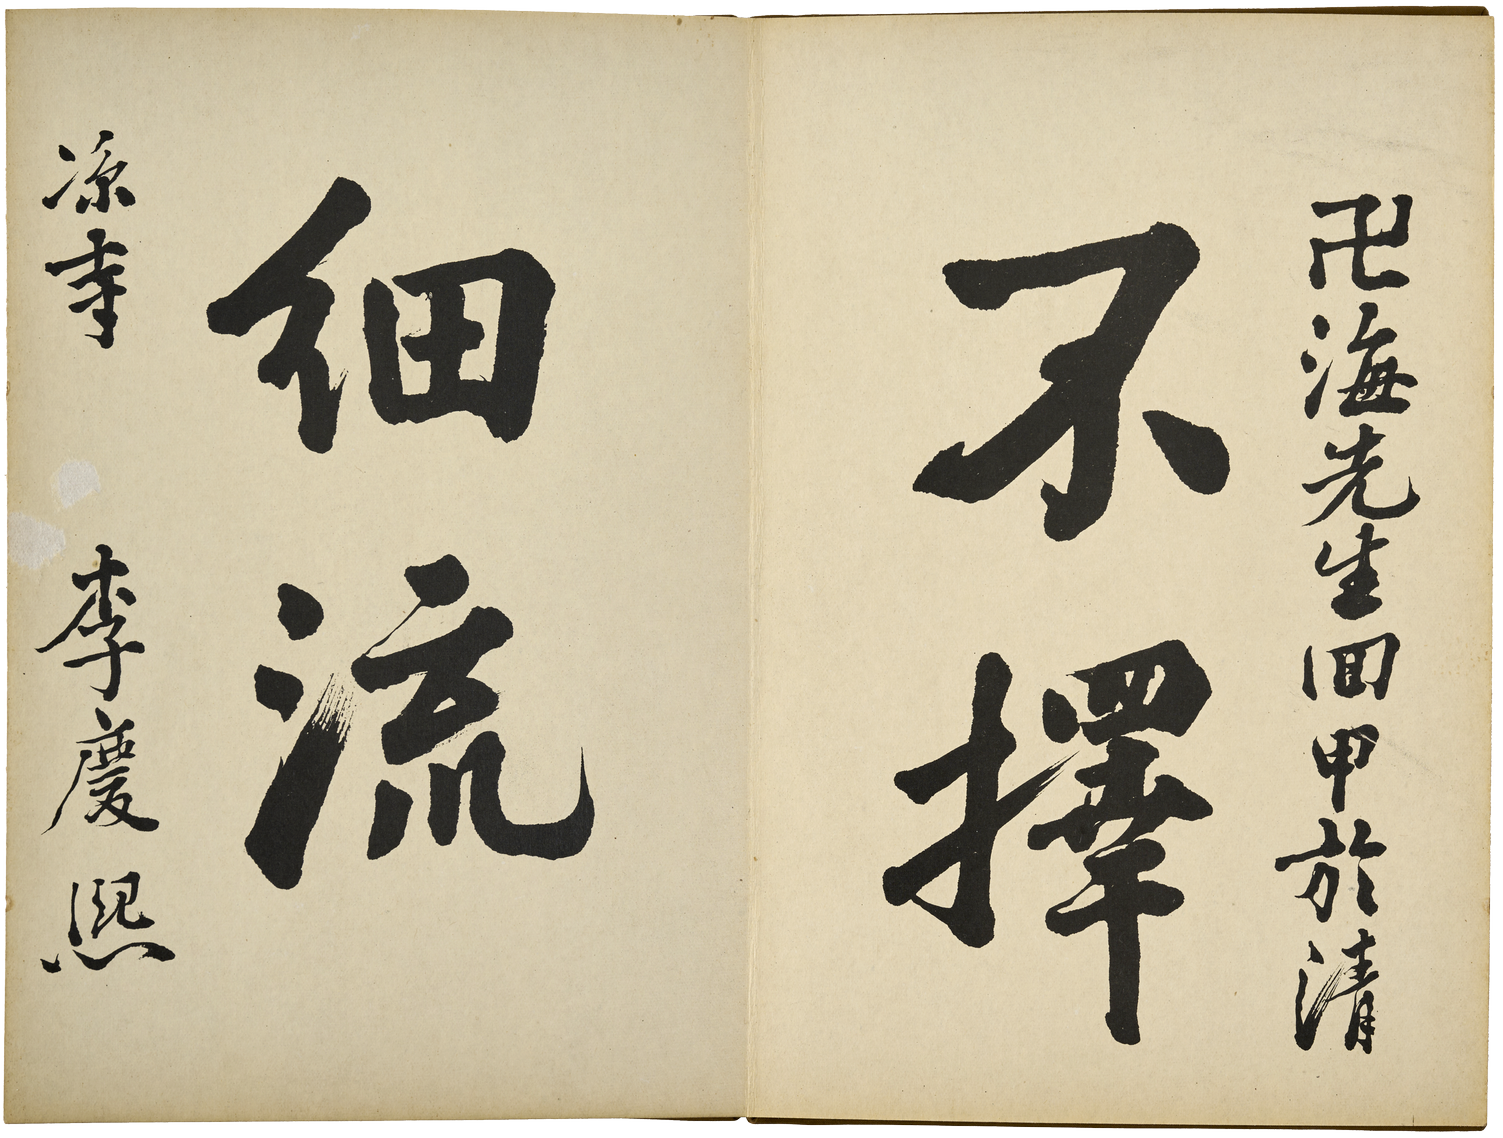 卍海先生回甲於清
不擇
細流
凉幸
李慶熙